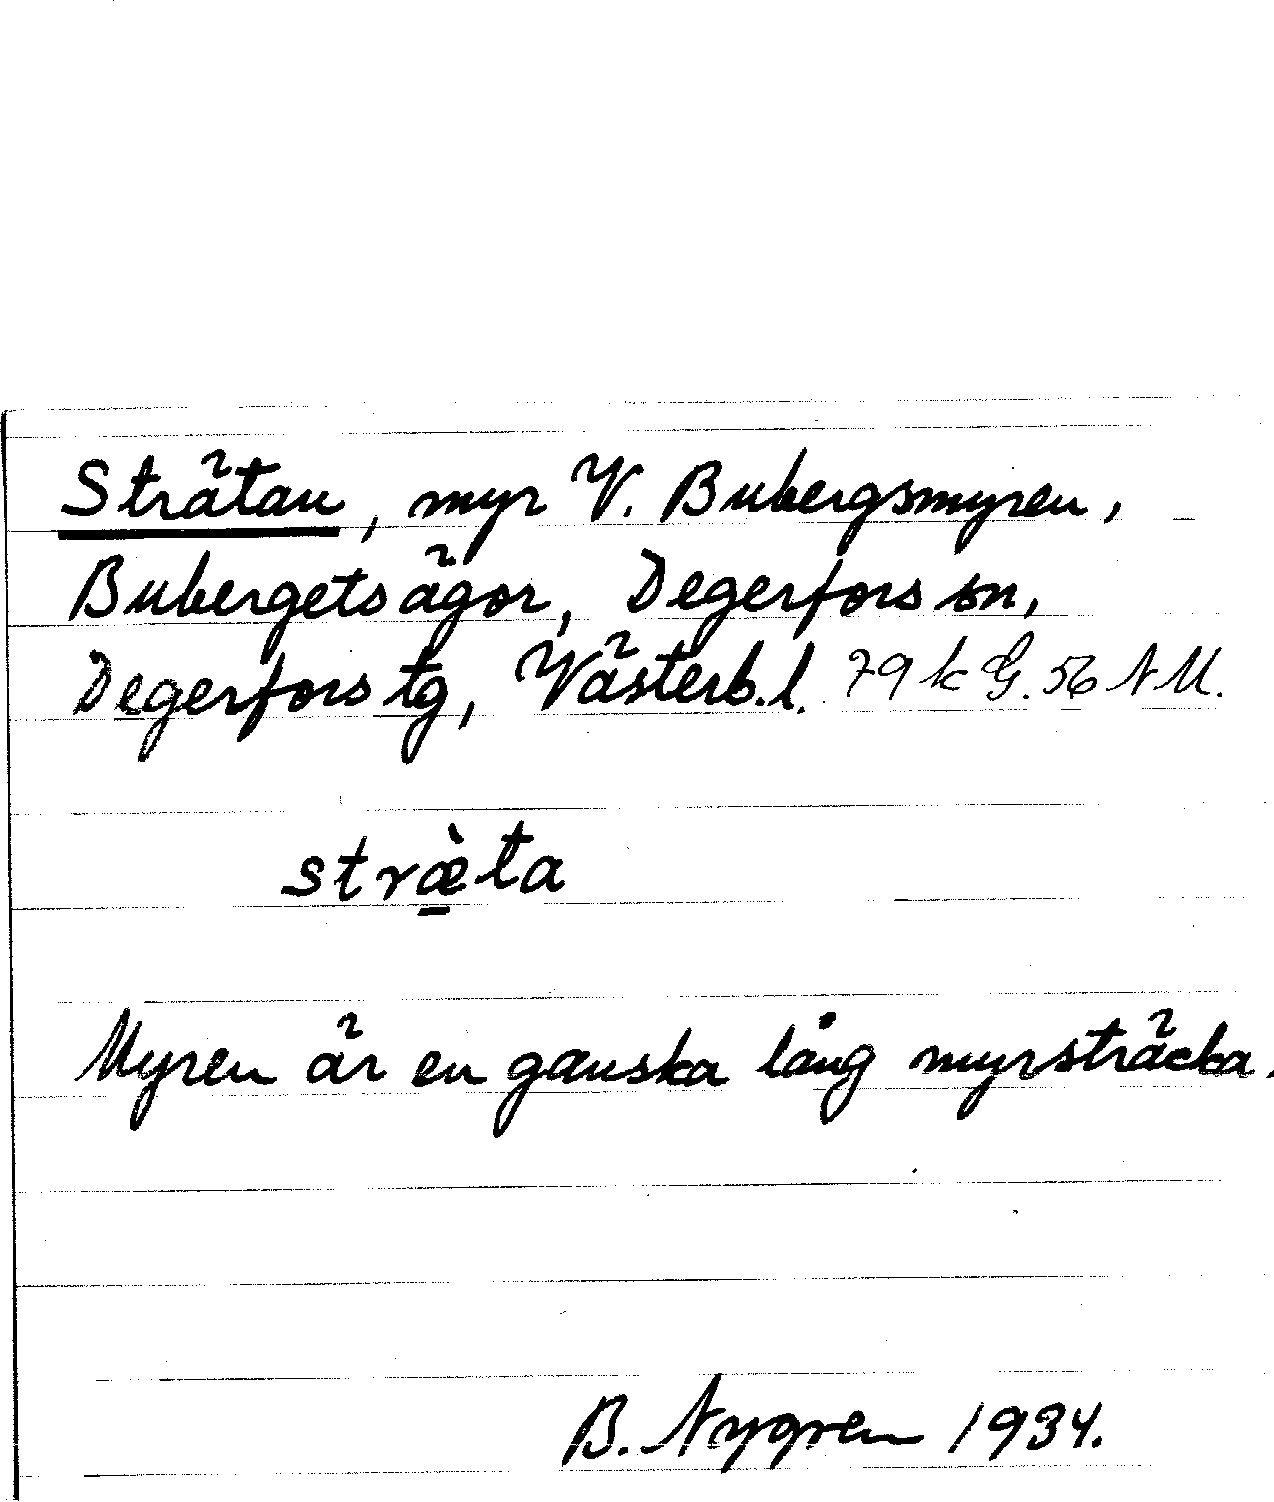 Strätan, myr V. Bubergsmyren,
Bubergets ägor, Degerfors sn,
Degerfors tg, Västerb. l. 79 k G. 56 N M.
stræ̠̀ta
Myren är en ganska lång myrsträcka.
B. Nygren 1934.